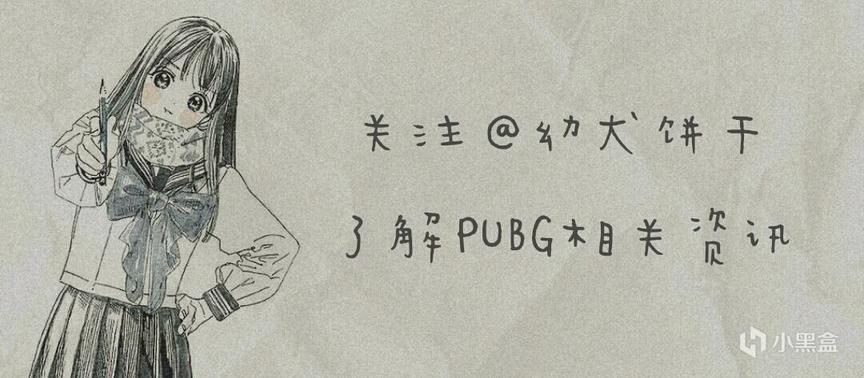 关注@幼犬饼干
了解PUBG相关资讯
小黑盒